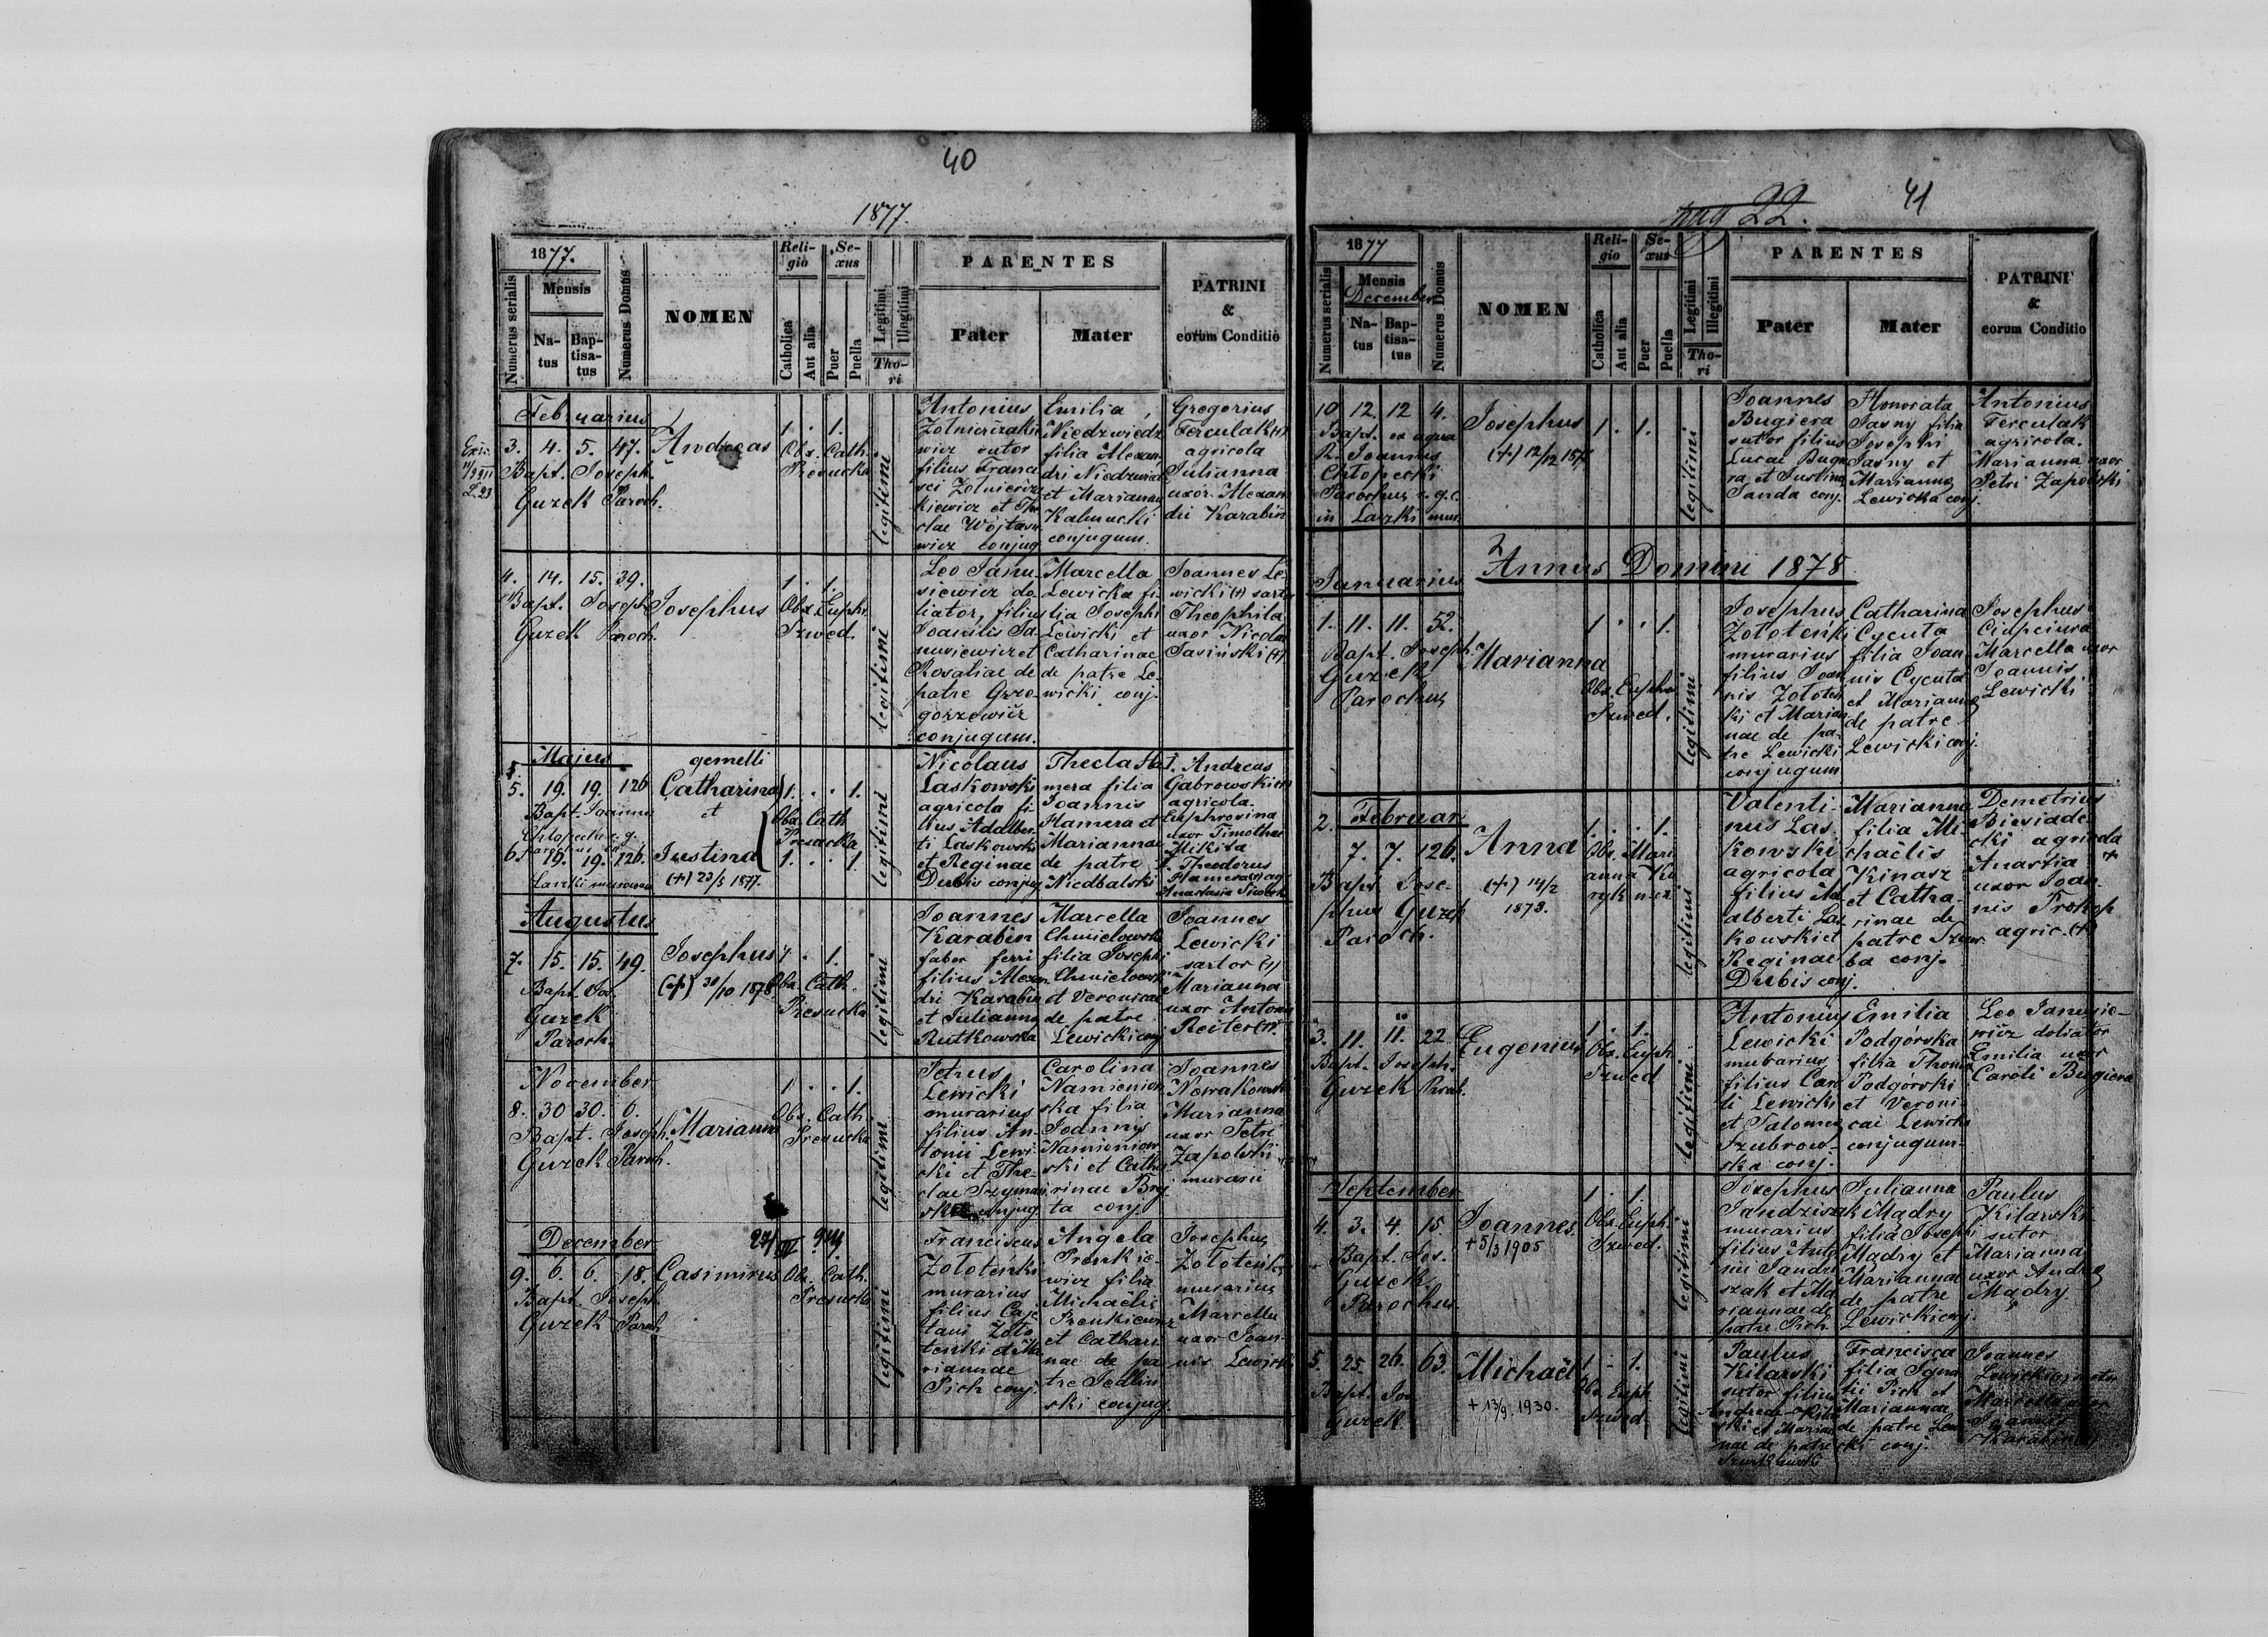 40
1877.
1877.
Numerus serialis
Mensis
Na-
tus
Bap-
tisa-
tus
Numerus Domus
NOMEN
Reli-
gio
Catholica
Aut alia
Se-
xus
Puer
Puella
Legitimi
Illegitimi
Tho-
ri
PARENTES
Pater
Mater
PATRINI
&
eorum Conditio
Februarius
3. 4. 5. 47.
Bapt. Joseph.
Guzek Paroch.
Andreas
1. . 1.
Obs. Cath.
Presucka
legitimi
Antonius
filius Franci
conjug
Emilia
Niedzwiedz
filia Alexan-
dri Niedzwiedz
et Marianna
Kalmucki
conjugum.
Gregorius
Ferculak (+)
agricola
Julianna
uxor Alexan
dri Karabin
4. 14. 15. 39.
Bapt. Joseph
Guzek Paroch.
Josephus
1. . 1.
Obs. Euphr.
Szwed.
legitimi
Leo Janu-
siewicz do-
liator, filius
Joannis Ja-
nusiewicz et
Rosaliae de
patre Grze-
gorzewicz
conjugum.
Marcella
Lewicka fi-
lia Josephi
Lewicki et
Catharinae
de patre Le-
wicki conj.
Joannes Le-
wicki (+) sartor
Theophila
uxor Nicolai
Jasiński (+)
Majus
gemelli
5. 19. 19. 126
Catharina
1. . . 1.
et
Obs. Cath.
Presucka
6. 19. 19. 126.
Justina
1. . . 1.
(+) 23/5 1877.
legitimi
Nicolaus
Laskowski
agricola fi-
lius Adalber-
ti Laskowski
et Reginae
Dubis conjug
Thecla Ha-
mera filia
Joannis
Hamera et
Mariannae
de patre
Niedbalski
1. Andreas
Gabrowski (+)
agricola.
Euphrosina
uxor Timothei
Mikita
Theodorus
Augustus
7. 15. 15. 49.
Bapt. Jos.
Guzek
Paroch.
Josephus
(+) 30/10 1878.
1. . 1.
Obs. Cath.
Presucka
legitimi
Joannes
Karabin
faber ferri
filius Alexan
dri Karabin
et Julianna
Rutkowska
Marcella
Chmielowska
filia Josephi
Chmielowski
et Veronicae
de patre
Lewicki conj
Joannes
Lewicki
sartor (+)
Marianna
uxor Antonii
Reiter (+)
November
8. 30 30. 6.
Bapt. Joseph.
Guzek Paroch.
Marianna
1. . . 1.
Obs. Cath.
Presucka
legitimi
Petrus
Lewicki
murarius
filius An-
tonii Lewi-
cki et The-
clae Szyman
ski conjug
Carolina
Namieniow
ska filia
Joannis
Namieniow
ski et Catha
rinae Bry
ta conj
Joannes
Nowakowski
Marianna
uxor Petri
Zapolski
murarii
December
9. 6. 6. 18.
Bapt. Joseph.
Guzek Paroch
Casimirus
Obs. Cath.
Presucka
legitimi
Franciscus
Zołoteńki
murarius
filius Caje
tani Zoło
tenki et Ma
riannae
Pich conj.
Angela
Prenkie-
wicz filia
Michaelis
Prenkiewicz
et Cathari
nae de pa
tre Jedlin
ski conjug.
Josephus
Zołoteńki
murarius
Marcella
uxor Joan-
nis Lewicki
pag 22.
41
1877
Numerus serialis
Mensis
December
Na-
tus
Bap-
tisa-
tus
Numerus Domus
NOMEN
Reli-
gio
Catholica
Aut alia
Se-
xus
Puer
Puella
Legitimi
Illegitimi
Tho-
ri
PARENTES
Pater
Mater
PATRINI
&
eorum Conditio
10 12. 12 4.
Bapt. ex aqua
R. Joannes
Chłopecki
Parochus r. g. c.
in Laszki mur.
Josephus
1. . 1.
legitimi
Joannes
Bugiera
sutor filius
Lucae Bugie
ra et Justina
Sanda conj.
Honorata
Jasny filia
Josephi
Jasny et
Marianna
Lewicka conj.
Antonius
Ferculak
agricola.
Marianna uxor
Petri Zapolski
Annus Domini 1878
Januarius
1. 11. 11. 52.
Bapt. Joseph.
Guzek
Parochus
Marianna
1 . . 1.
Obs. Euphr
Szwed.
legitimi
Josephus
Zołoteńki
murarius
filius Joan
nis Zołoten
ki et Marian
nae de pa-
tre Lewicki
conjugum
Catharina
Cycuta
filia Joan-
nis Cycuta
et Marianna
de patre
Lewicki conj.
Josephus
Ciupciura
Marcella uxor
Joannis
Lewicki
Februar.
2. 7. 7. 126.
Bapt. Jose-
phus Guzek
Paroch.
Anna
(+) 14/2
1878.
1. . . 1.
Obs. Mari
anna
legitimi
Valenti-
nus Las-
kowski
agricola
filius Ad
alberti Las
kowski et
Reginae
Dubis conj.
Marianna
filia Mi-
chaëlis
Kinasz
et Catha-
rinae de
patre
conj.
Demetrius
Biesiade-
cki agricola
Anastia +
uxor Joan-
nis Prokop
agric. (+)
3. 11. 11. 22.
Bapt. Joseph.
Guzek Paroch.
Eugenius
1. . 1.
Obs. Euph.
Szwed
legitimi
Antonius
Lewicki
murarius
filius Caro
li Lewicki
et Salomea
Szubrow-
ska conj.
Emilia
Podgórska
filia Thomae
Podgórski
et Veroni-
cae Lewicki
conjugum.
Leo Janusie-
wicz doliator
Emilia uxor
Caroli Bugiera
September
4. 3. 4. 15.
Bapt. Jos.
Guzek
Parochus
Joannes.
+ 5/3 1905
1. . 1.
Obs. Euph.
Szwed.
legitimi
Josephus
Jandziszak
murarius
filius Anto
nii Jandzi
szak et Ma
riannae de
patre Pich.
Julianna
Mądry
filia Josephi
Mądry et
Mariannae
de patre
Lewicki conj.
Paulus
Kilarski
sutor
Marianna
uxor Andreae
Mądry
5. 25. 26. 63.
Bapt. Jos.
Guzek
Michaël
+ 13/9. 1930.
1 . 1.
Obs. Euph
Szwed.
legitimi
Paulus
Kilarski
sutor filius
Andreae Kilar
ski et Marian
nae de patre
Francisca
filia Igna
tii Pich et
Marianna
de patre Lewi
cki conj.
Joannes
Lewicki
Marcella uxor
Joannis
Karabin